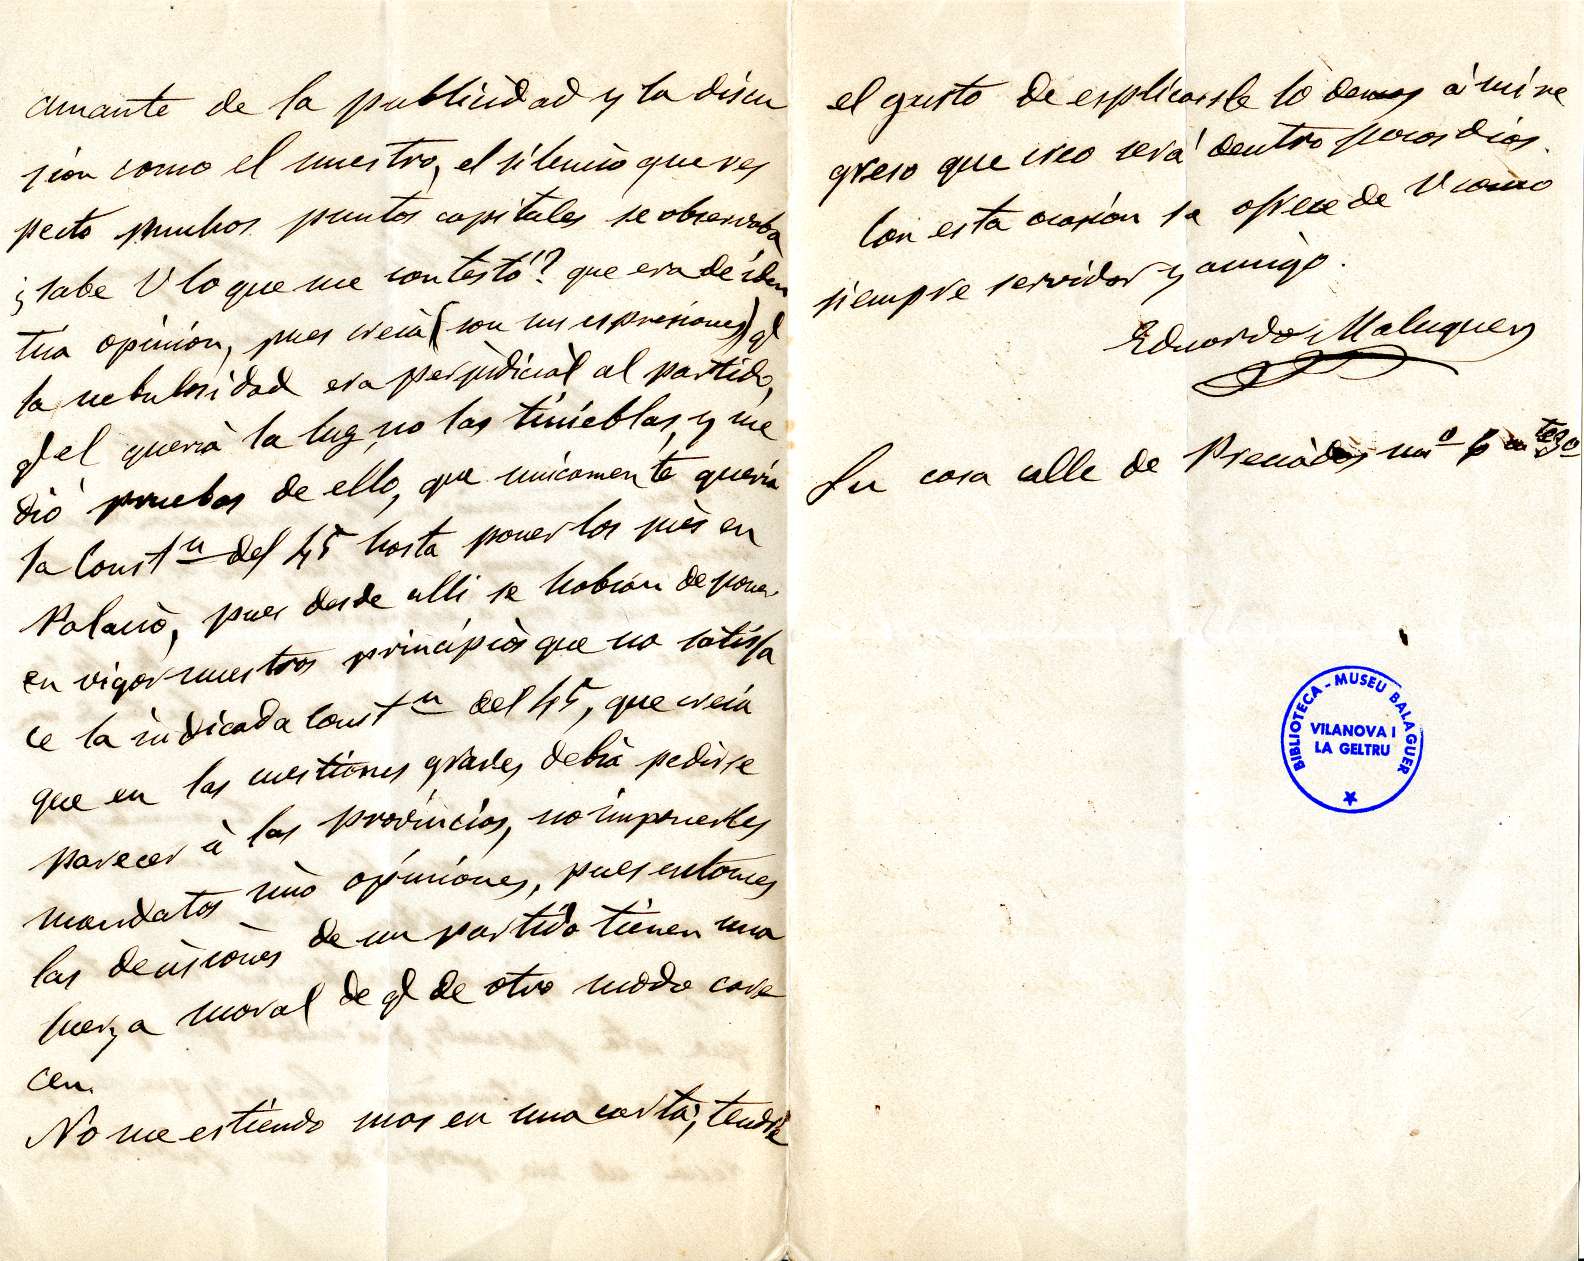 amante de la publicidad y la discu
sion como el nuestro, el silencio que res
pecto muchos puntos capitales se observaba
¿sabe V lo que me contestó? que era de iden
tica opinion, pues creia (son sus espresiones) qe
la nebulosidad era perjudicial al partido,
qe el queria la luz, no las tinieblas, y me
dió pruebas de ello, que unicamente queria
la Constn del 45 hasta poner los pies en
Palacio, pues desde alli se habian de poner
en vigor nuestros principios que no satisfa
ce la indicada Constn del 45, que creia
que en las cuestiones graves debia pedirse
parecer à las provincias, no imponerles
mandatos sino opiniones, pues entonces
las decisiones de un partido tienen una
fuerza moral de qe de otro modo care
cen.
No me estiendo mas en una carta, tendré
el gusto de esplicarle lo demas à mi re
greso que creo será dentro pocos dias.
Con esta ocasion se ofrece de V como
siempre servidor y amigo.
Eduardo Maluquer
Su casa calle de Preciados nº 6
BIBLIOTECA - MUSEU BALAGUER
VILANOVA I
LA GELTRU